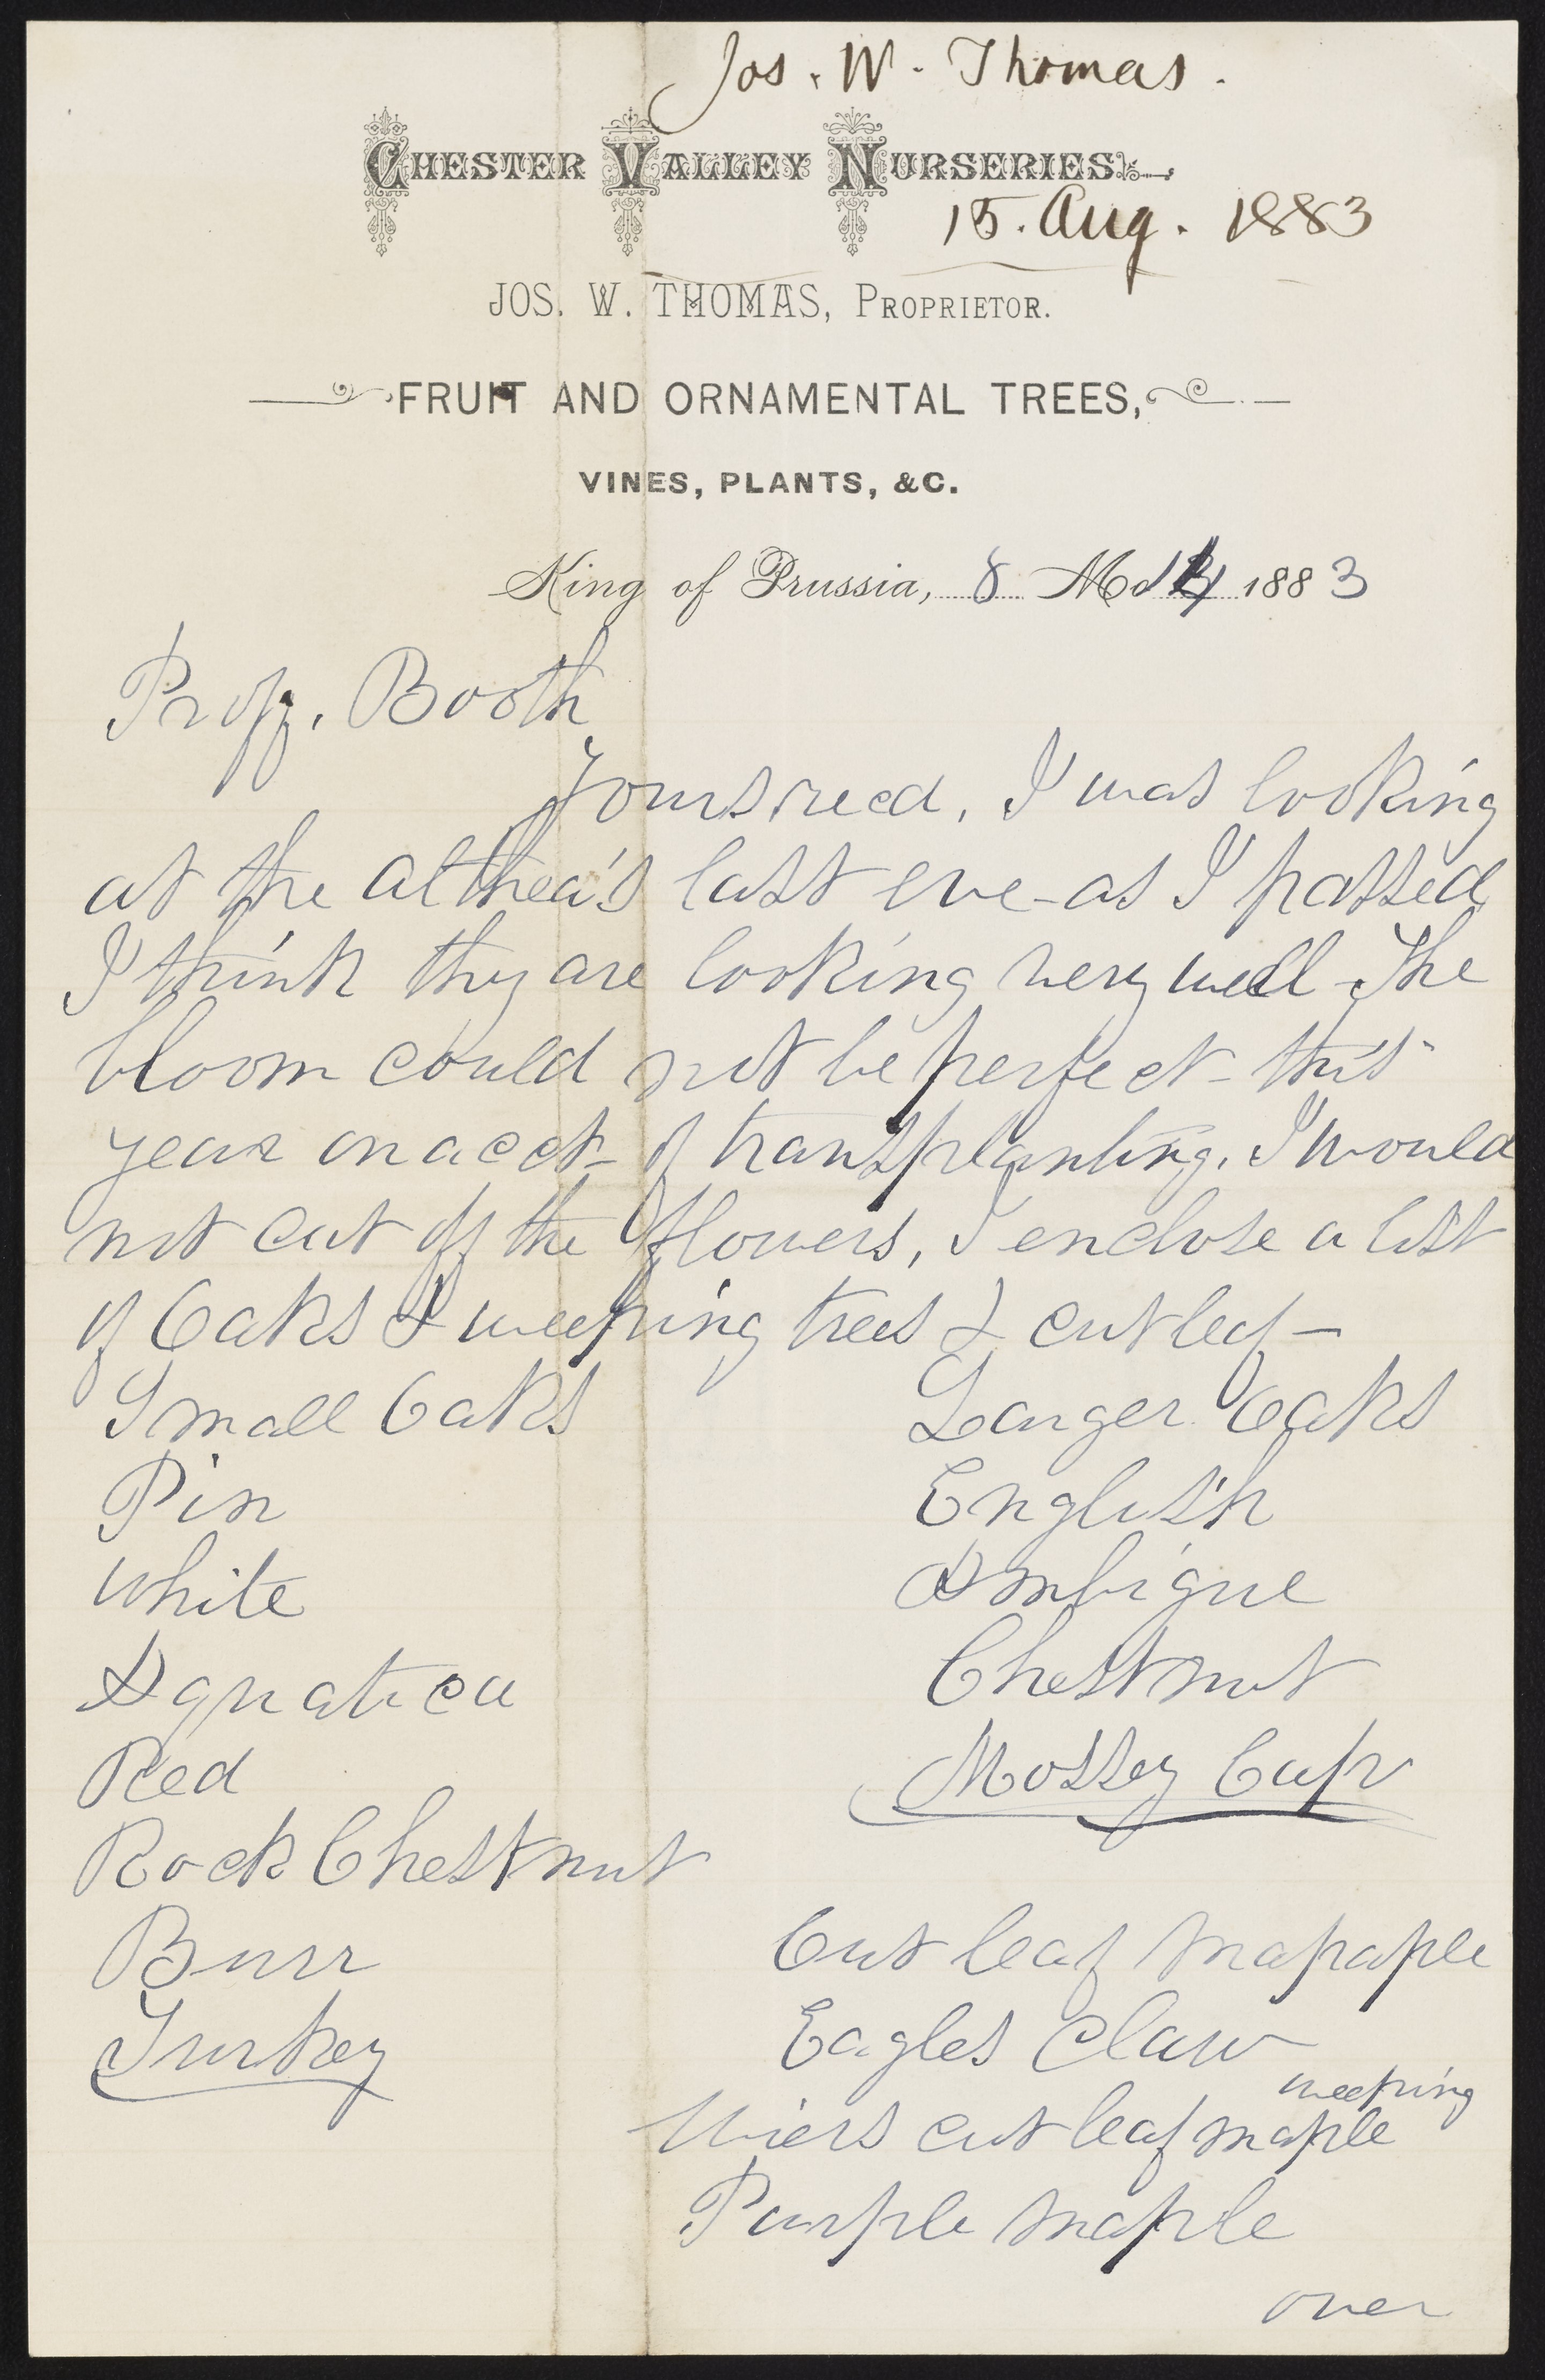 Jos. W. Thomas.
CHESTER VALLEY NURSERIES.
15. Aug. 1883
JOS. W. THOMAS, PROPRIETOR.
FRUIT AND ORNAMENTAL TREES,
VINES, PLANTS, &C.
King of Prussia, 8 Mo 14 1883
Proff. Booth
Yours recd, I was looking
at the althea's last eve - as I passed
I think they are looking very well - The
bloom could not be perfect - this
year on acct - of transplanting. I would
not cut off the flowers, I enclose a list
of Oaks & weeping trees & cut leaf -
Small Oaks
Pin
White
Aquatica
Red
Rock Chestnut
Burr
Turkey
Larger Oaks
English
Ambigue
Chestnut
Mossey Cup
Cut leaf mapaple
Eagles Claw
weeping
Wiers cut leaf maple
Purple maple
over